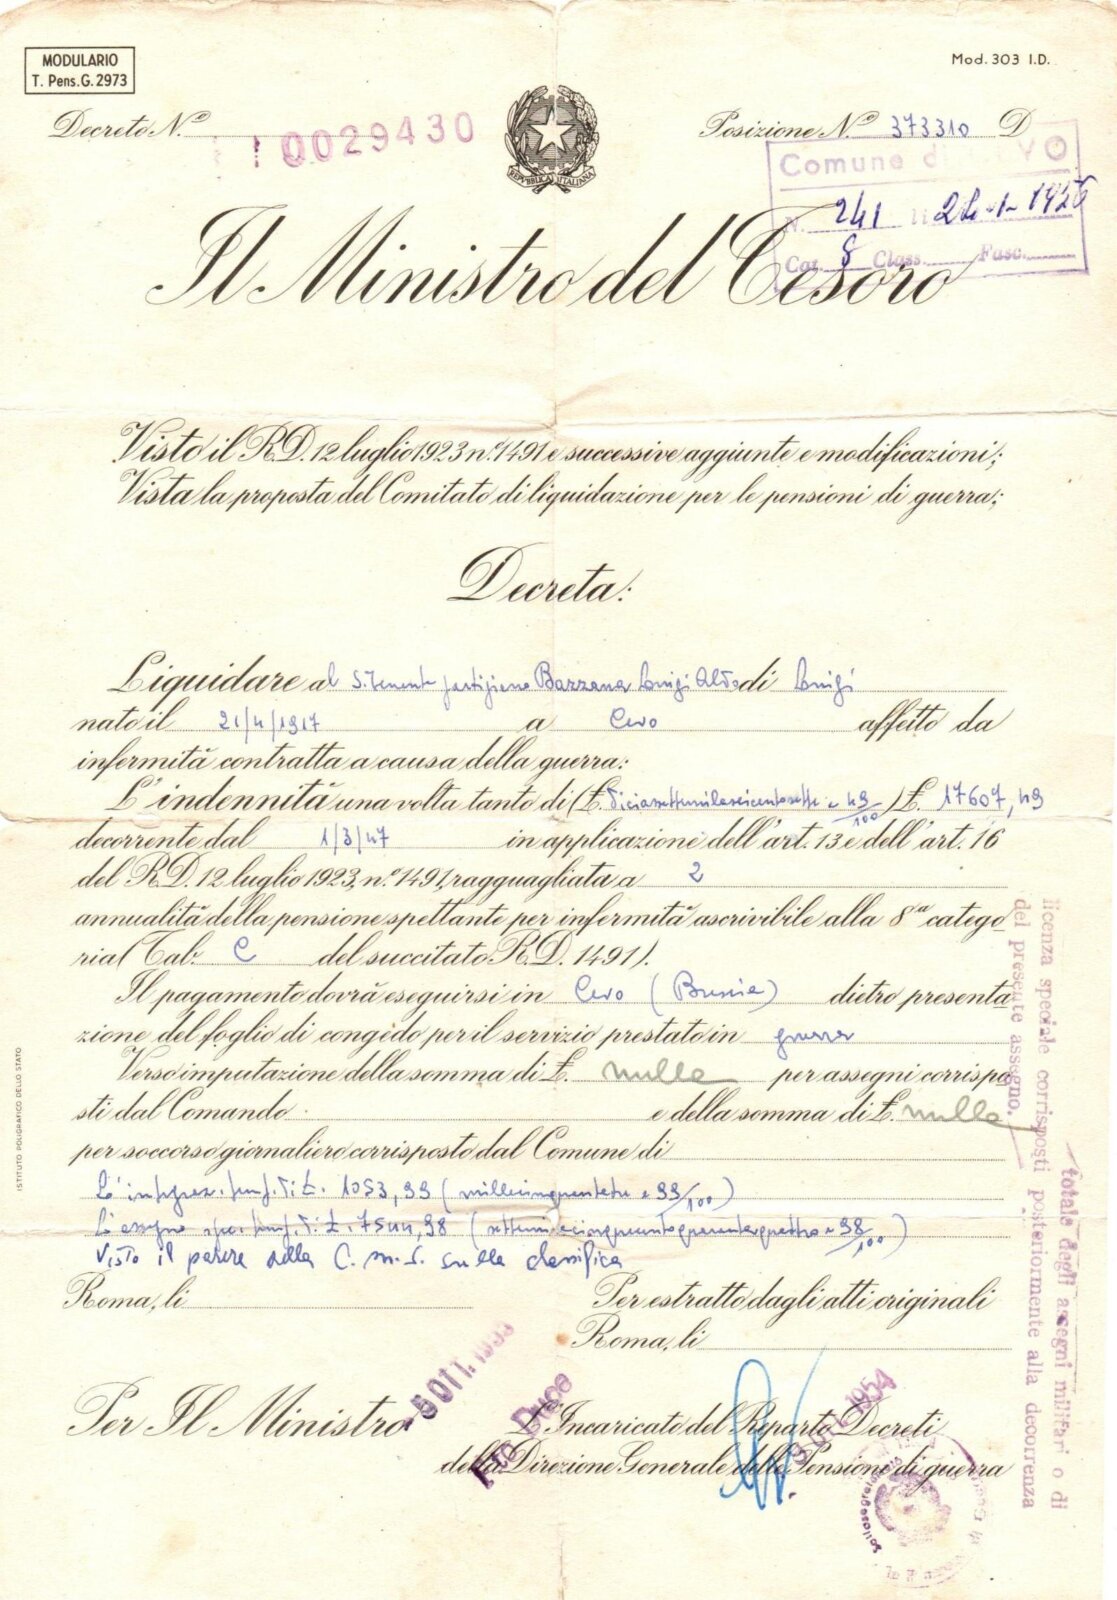 MODULARIO
T. Pens. G. 2973
Mod. 303 I.D.
Decreto N.º 10029430
Posizione N.º 373310 D
REPVBBLICA ITALIANA
Comune di VO
N. 241 li 24-1-1956
Cat. 8 Class. Fasc.
Il Ministro del Tesoro
Visto il R.D. 12 luglio 1923 n.º 1491 e successive aggiunte e modificazioni;
Vista la proposta del Comitato di liquidazione per le pensioni di guerra;
Decreta:
Liquidare al S. Tenente partigiano Bazzana Luigi Aldo di Luigi
nato il 21/4/1917 a Cevo affetto da
infermità contratta a causa della guerra:
L'indennità una volta tanto di (£. diciassettemilaseicentosette e 49/100) £. 17607,49
decorrente dal 1/3/47 in applicazione dell'art. 13 e dell'art. 16
del R.D. 12 luglio 1923, n.º 1491, ragguagliata a 2
annualità della pensione spettante per infermità ascrivibile alla 8ª catego
ria (Tab. C del succitato R.D. 1491).
Il pagamento dovrà eseguirsi in Cevo (Brescia) dietro presenta
zione del foglio di congedo per il servizio prestato in guerra
Verso imputazione della somma di £. nulla per assegni corrispo
sti dal Comando e della somma di £. nulla
per soccorso giornaliero corrisposto dal Comune di
L'integraz. temp. di £. 1053,99 (millecinquantatre e 99/100)
L'assegno spec. temp. di £. 7544,98 (settemilacinquecentoquarantaquattro e 98/100)
Visto il parere della C. M. S. sulla classifica
Roma, li
Per estratto dagli atti originali
Roma, li
Per Il Ministro
L'Incaricato del Reparto Decreti
della Direzione Generale delle Pensione di guerra
OTT. 1953
F.to Duce
1954
totale degli assegni militari o di
licenza speciale corrisposti posteriormente alla decorrenza
del presente assegno.
ISTITUTO POLIGRAFICO DELLO STATO